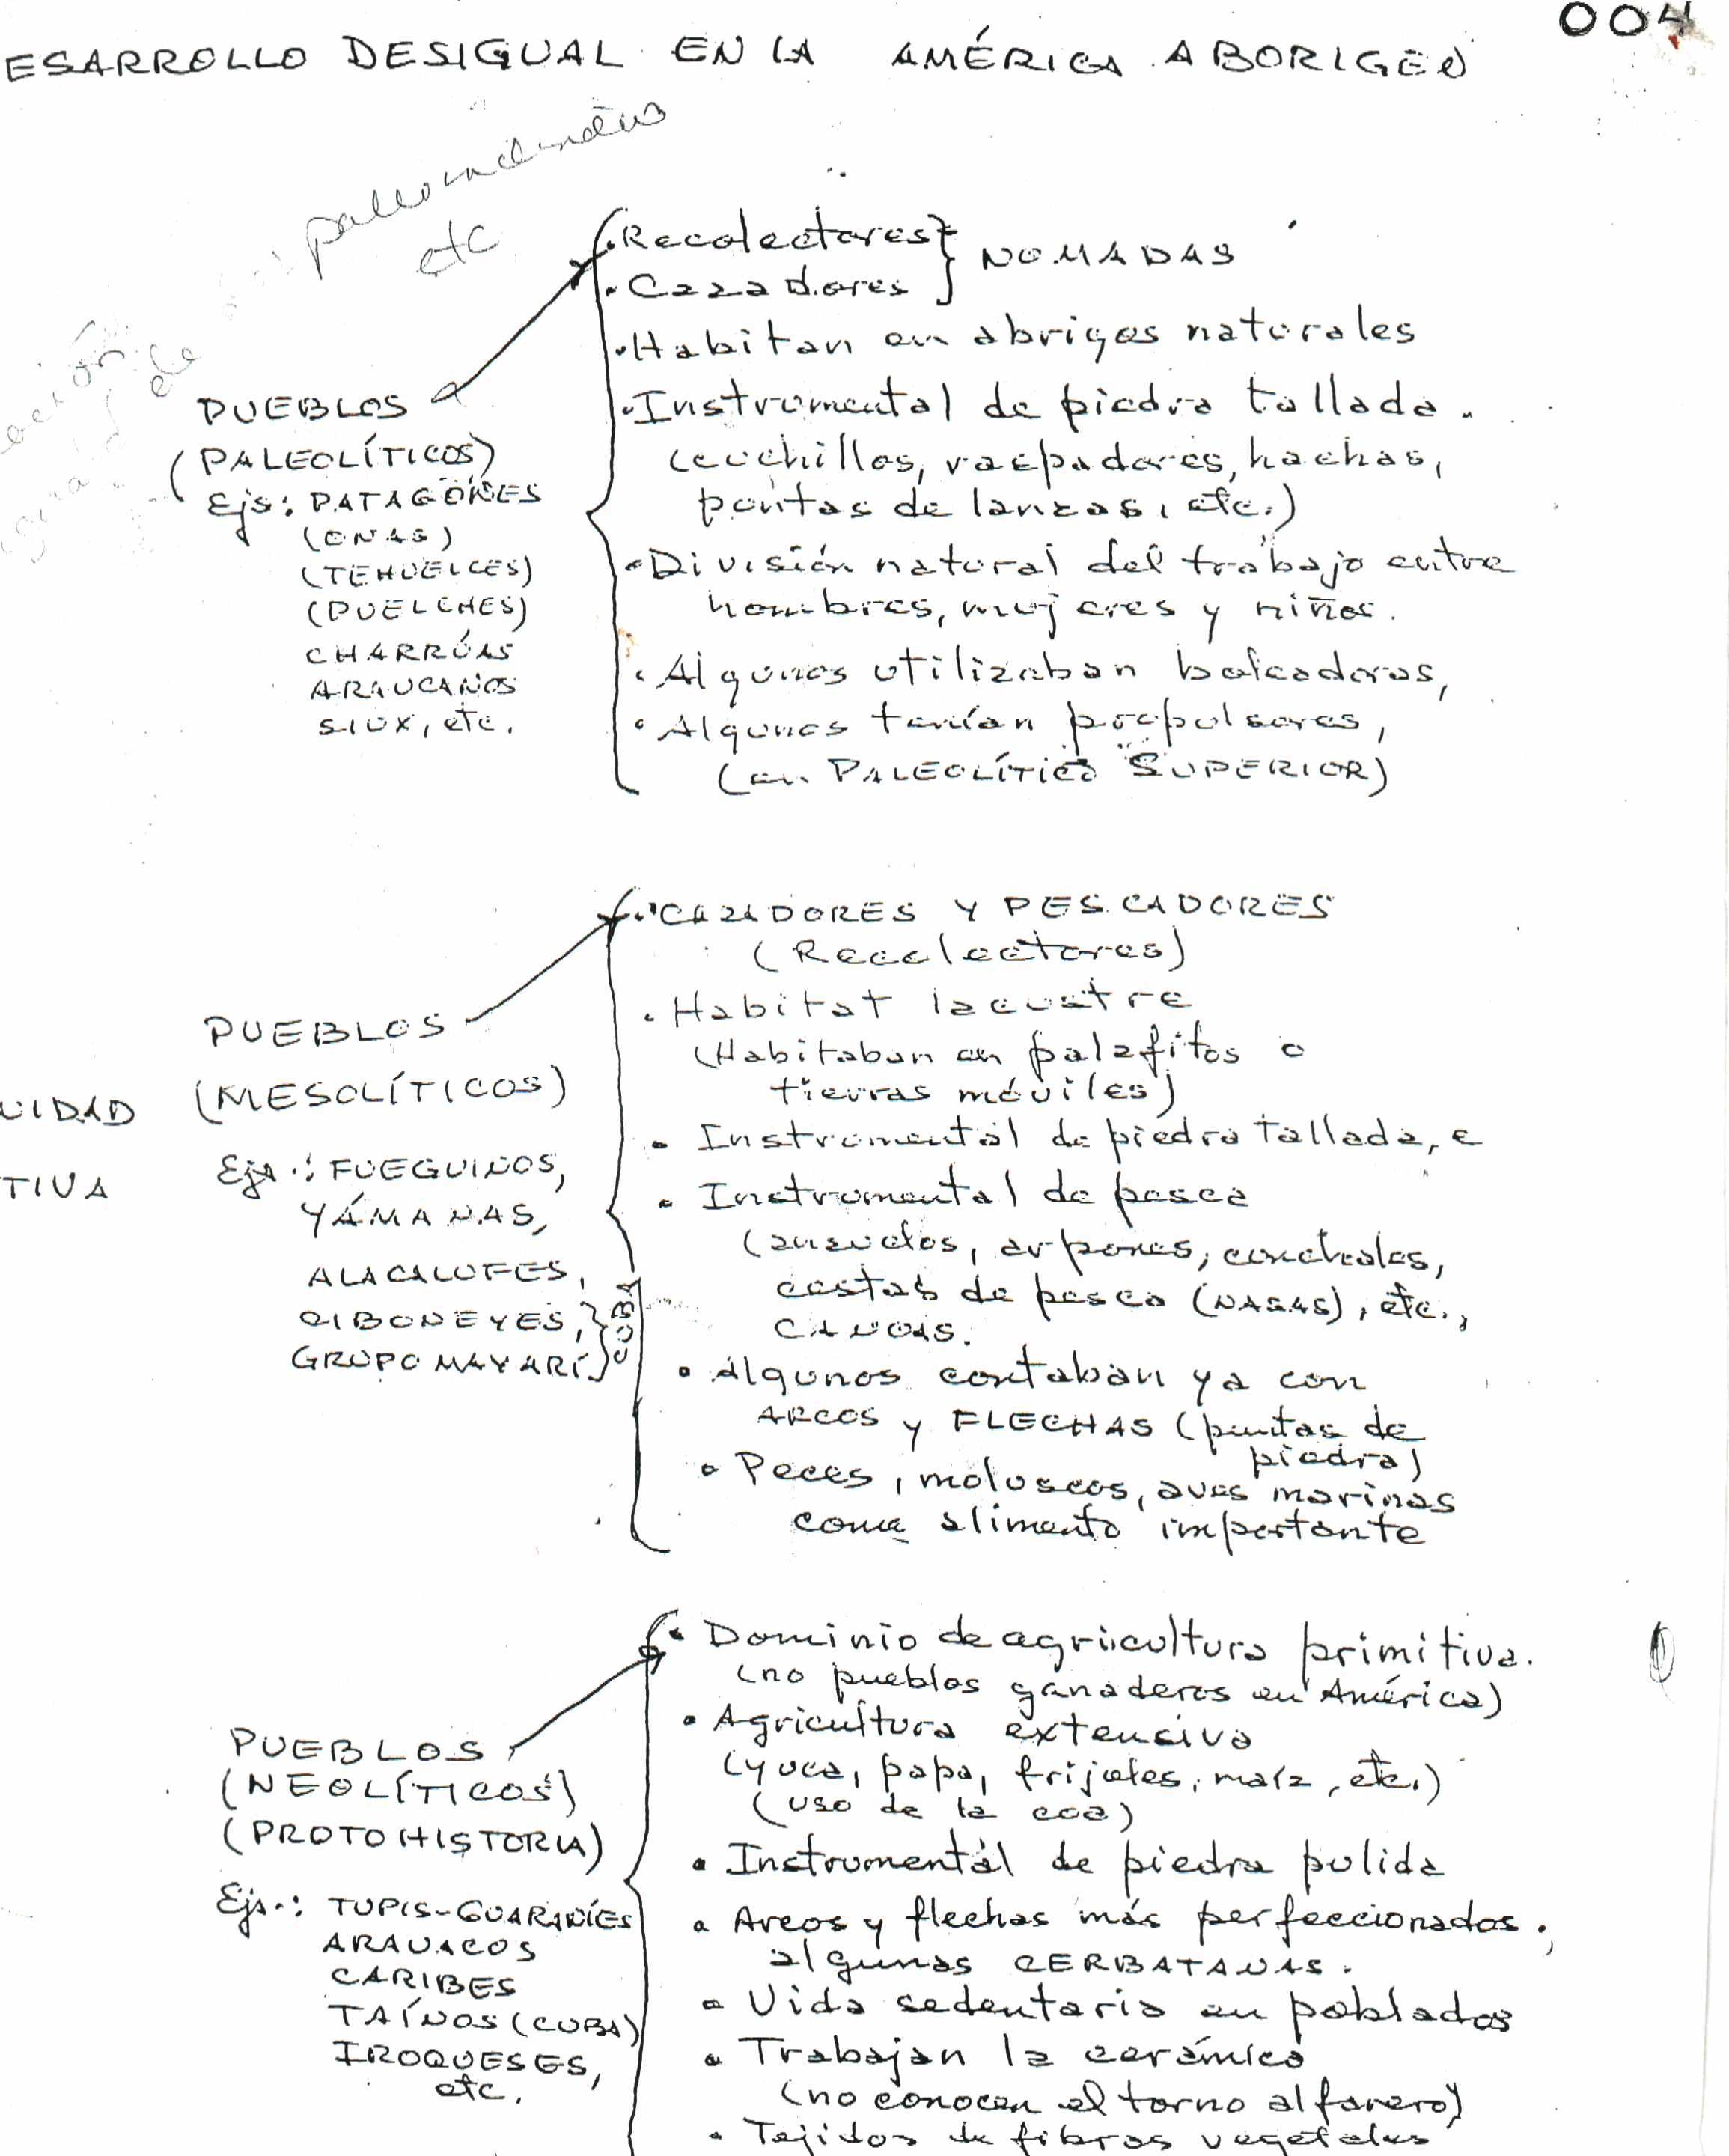 004
ESARROLLO DESIGUAL EN LA AMÉRICA ABORIGEN
etc
de
PUEBLOS
(PALEOLÍTICOS)
Ejs: PATAGONES
(ONAS)
(TEHUELCES)
(PUELCHES)
CHARRÚAS
ARAUCANOS
SIUX, etc.
• Recolectores } NOMADAS
• Cazadores
• Habitan en abrigos naturales
• Instrumental de piedra tallada.
(cuchillos, raspadores, hachas,
puntas de lanzas, etc.)
• División natural del trabajo entre
hombres, mujeres y niños.
• Algunos utilizaban boleadoras,
• Algunos tenían propulsores,
(en PALEOLÍTICO SUPERIOR)
UIDAD
TIVA
PUEBLOS
(MESOLÍTICOS)
Ejs.: FUEGUINOS,
YÁMANAS,
ALACALUFES,
CIBONEYES, } CUBA
GRUPO MAYARÍ
• CAZADORES Y PESCADORES
(Recolectores)
• Habitat lacustre
(Habitaban en palafitos o
tierras móviles)
• Instrumental de piedra tallada, e
• Instrumental de pesca
(anzuelos, arpones, conchales,
cestas de pesca (NASAS), etc.,
CANOAS.
• Algunos contaban ya con
ARCOS y FLECHAS (puntas de
piedra)
• Peces, moluscos, aves marinas
como alimento importante
PUEBLOS
(NEOLÍTICOS)
(PROTOHISTORIA)
Ejs.: TUPIS-GUARANÍES
ARAUACOS
CARIBES
TAÍNOS (CUBA)
IROQUESES,
etc.
• Dominio de agricultura primitiva.
(no pueblos ganaderos en América)
• Agricultura extensiva
(yuca, papa, frijoles, maíz, etc.)
(uso de la coa)
• Instrumental de piedra pulida
• Arcos y flechas más perfeccionados;
algunas CERBATANAS.
• Vida sedentaria en poblados
• Trabajan la cerámica
(no conocen el torno alfarero)
• Tejidos de fibras vegetales